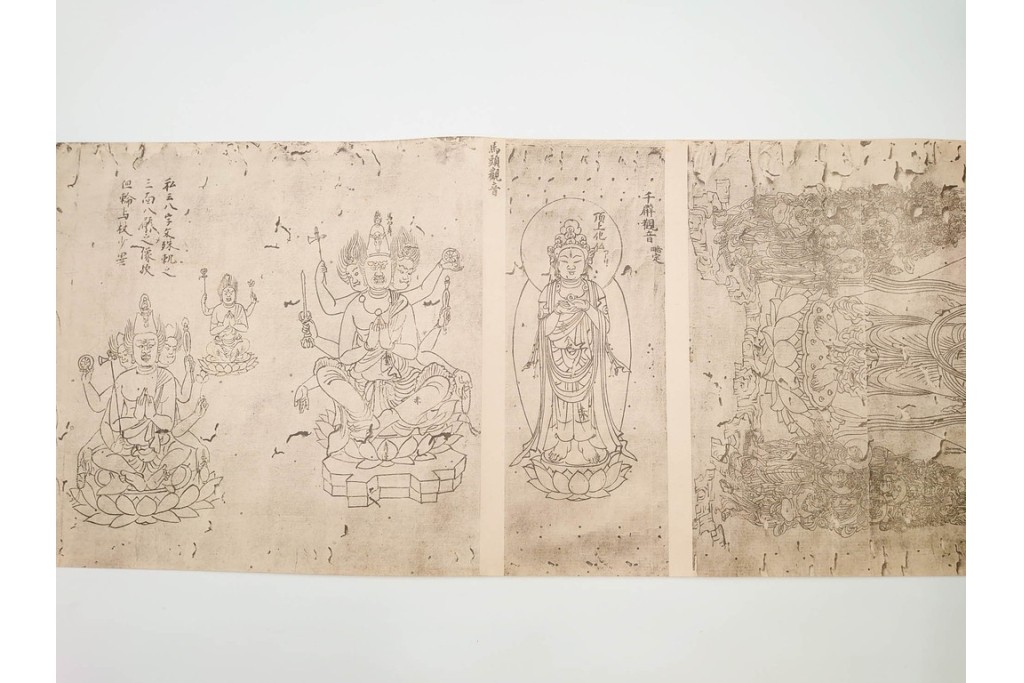 千臂觀音
頂上化仏
馬頭觀音
私云八字文殊軌之
三面八臂之像歟
但輪与杖少異